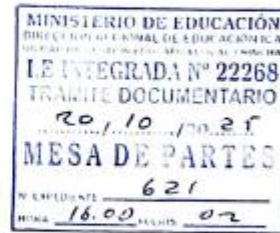 MINISTERIO DE EDUCACIÓN
DIRECCION REGIONAL DE EDUCACION ICA
I.E INTEGRADA Nº 22268
TRAMITE DOCUMENTARIO
20/10/2025
MESA DE PARTES
N° EXPEDIENTE 621
HORA 16.00 FOLIOS 02